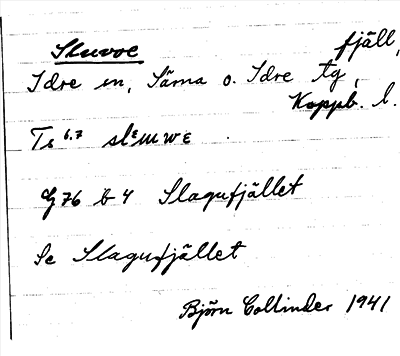 Sluvoe fjäll,
Idre sn, Särna o. Idre tg,
Koppb. l.
G 76 b 4 Slagufjället
Se Slagufjället
Björn Collinder 1941